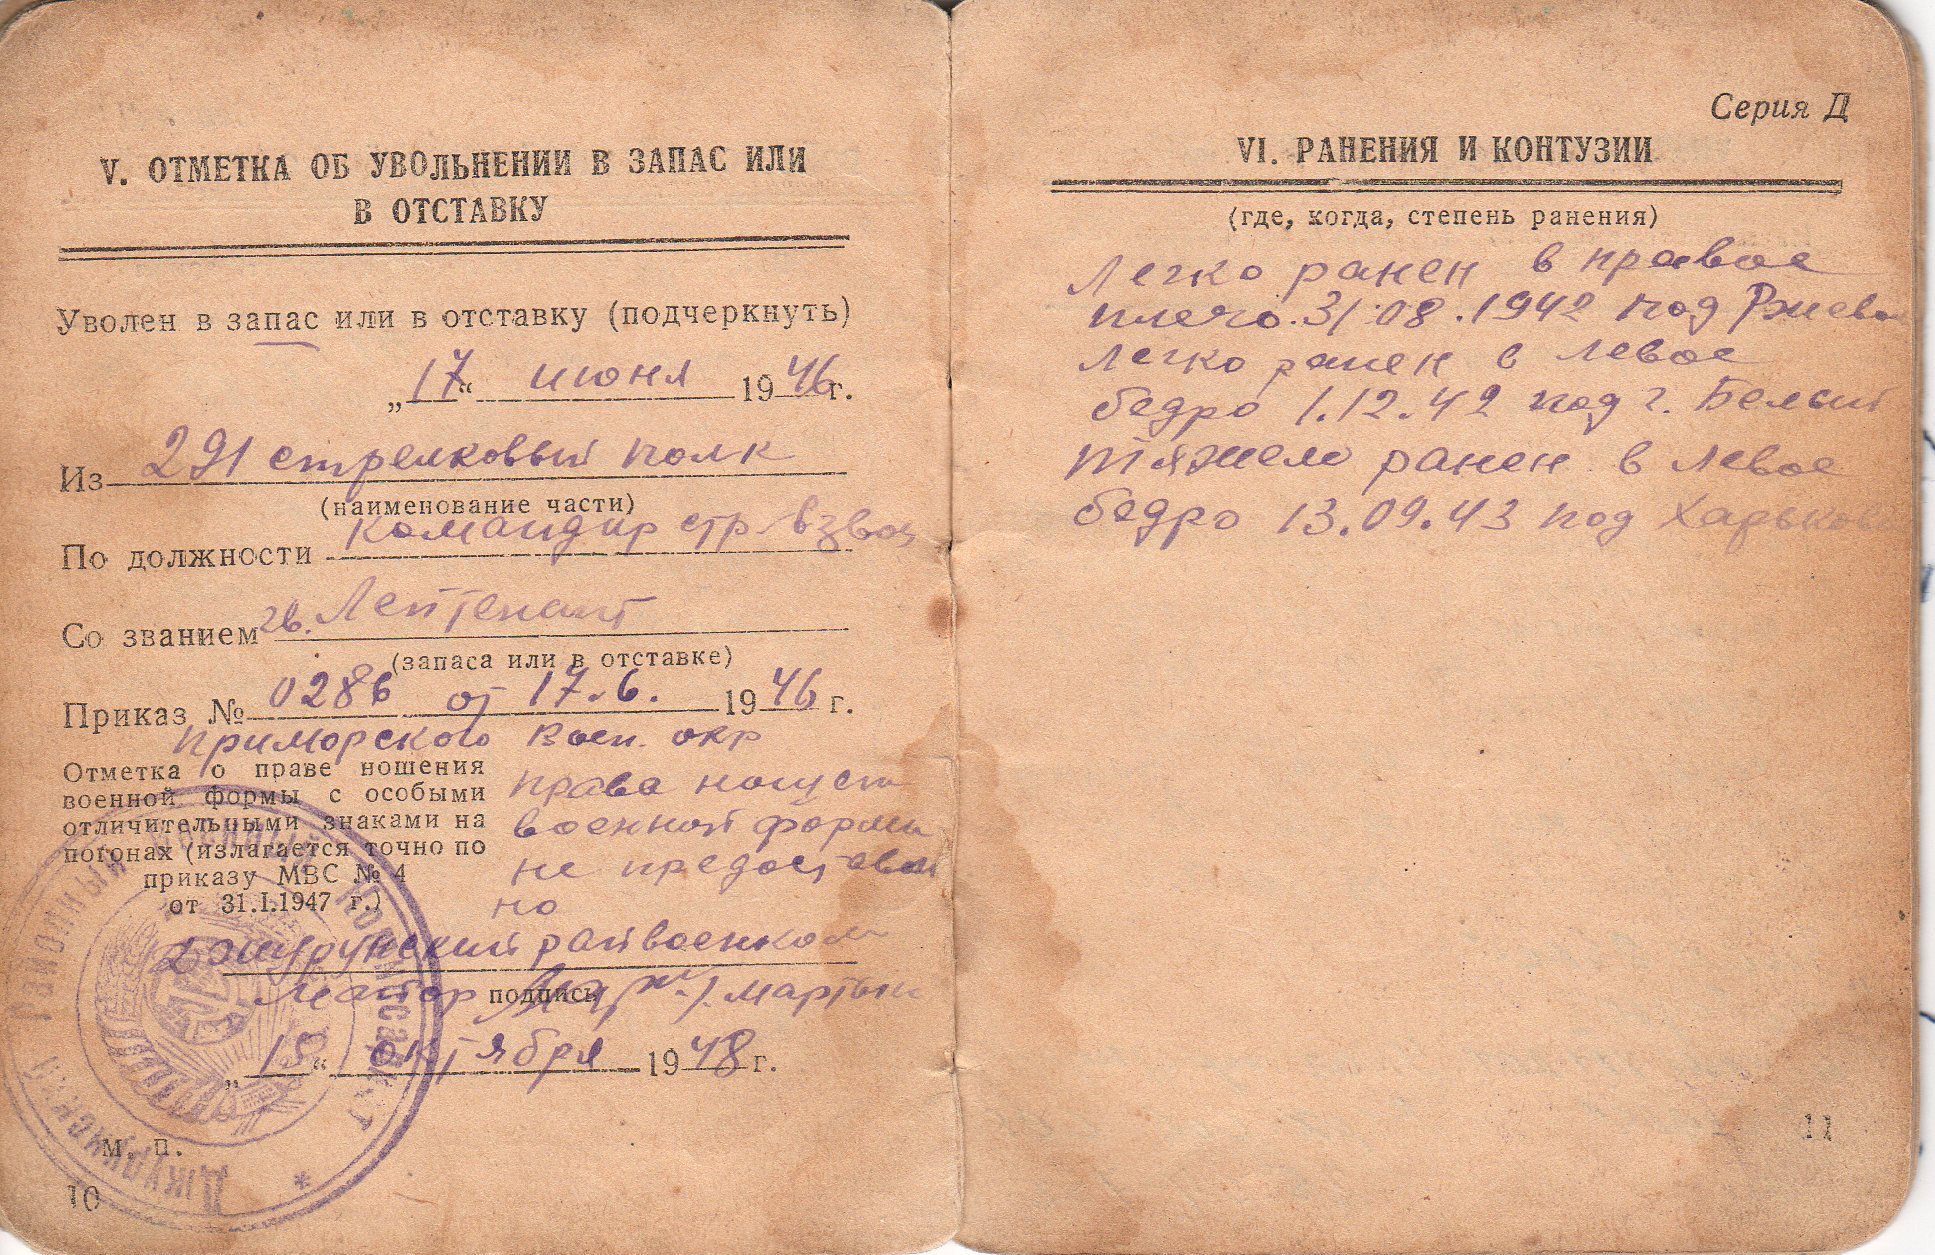 V. ОТМЕТКА ОБ УВОЛЬНЕНИИ В ЗАПАС ИЛИ
В ОТСТАВКУ
Уволен в запас или в отставку (подчеркнуть)
„17“ июня 1946 г.
Из 291 стрелковый полк
(наименование части)
По должности командир стр. взвода
Со званием гв. Лейтенант
(запаса или в отставке)
Приказ № 0286 от 17.6. 1946 г.
Приморского воен. окр
Отметка о праве ношения
военной формы с особыми
отличительными знаками на
погонах (излагается точно по
приказу МВС № 4
от 31.I.1947 г.)
права
военной формы
не предоставле
но
райвоенком
Майор подпись
октября 1948 г.
М. П.
10
РАЙОННЫЙ ВОЕННЫЙ КОМИССАРИАТ
Серия Д
VI. РАНЕНИЯ И КОНТУЗИИ
(где, когда, степень ранения)
Легко ранен в правое
плечо. 31.08.1942 под Ржевом
Легко ранен в левое
бедро 1.12.42 под г. Белый
Тяжело ранен в левое
бедро 13.09.43 под Харьков
11